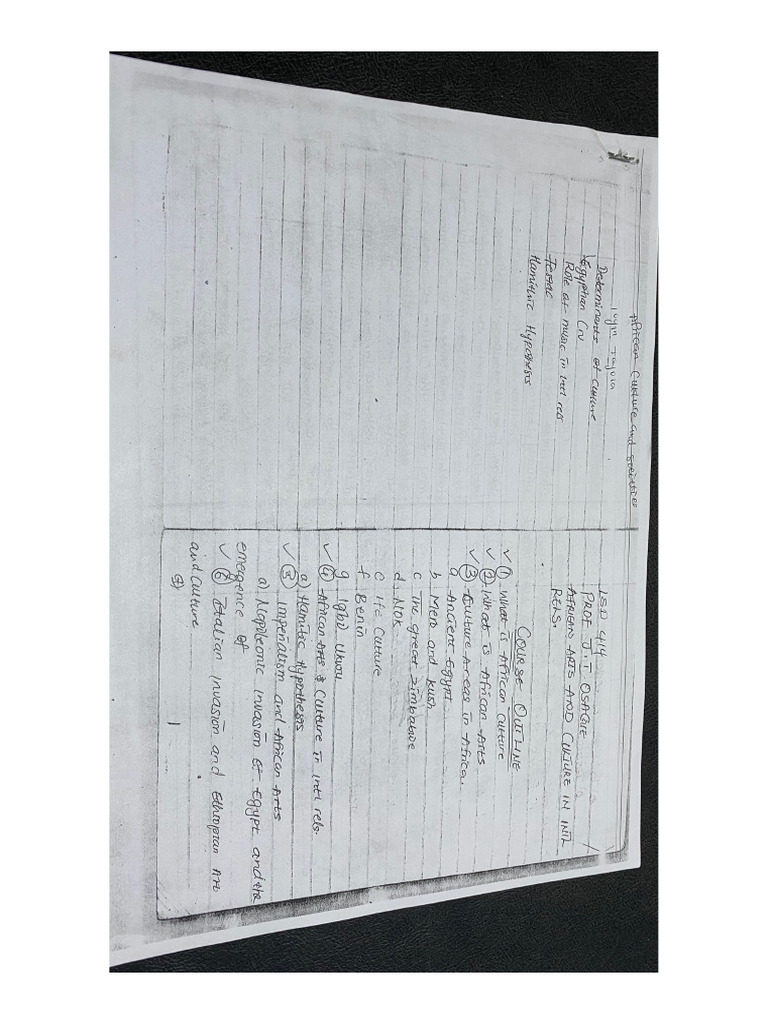 African Culture and societies
Determinants of culture
Egyptian Civ
Role of music in intl rels
Festac
Hamithic Hypothesis
ISD 414
PROF J.T OSAGIE
AFRICAN ARTS AND CULTURE IN INTL
RELS.
COURSE OUTLINE
✓ ① What is African culture
✓ ② What is African Arts
✓ ③ Culture Areas in Africa
a Ancient Egypt
b Mero and Kush
c The great Zimbabwe
d. NOK
e Ife Culture
f Benin
g Igbo Ukwu
✓ ④ African Arts & Culture in intl rels.
a) Hamitic Hypothesis
✓ ⑤ Imperialism and African Arts
a) Napoleonic invasion of Egypt and the
emergence of
✓ ⑥ Italian invasion and Ethiopian Art
and Culture
1